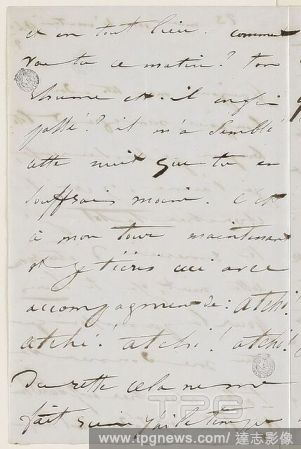 et en tout lieu. comment
vas-tu ce matin? ton
rhume est-il enfin
passé? il m'a semblé
cette nuit que tu en
souffrais moins. C'est
à mon tour maintenant
et je t'écris ceci avec
accompagnement de: atchi!
atchi! atchi! atchi!
Du reste cela ne me
fait rien j'ai le temps
TPG
www.tpgnews.com/ 達志影像